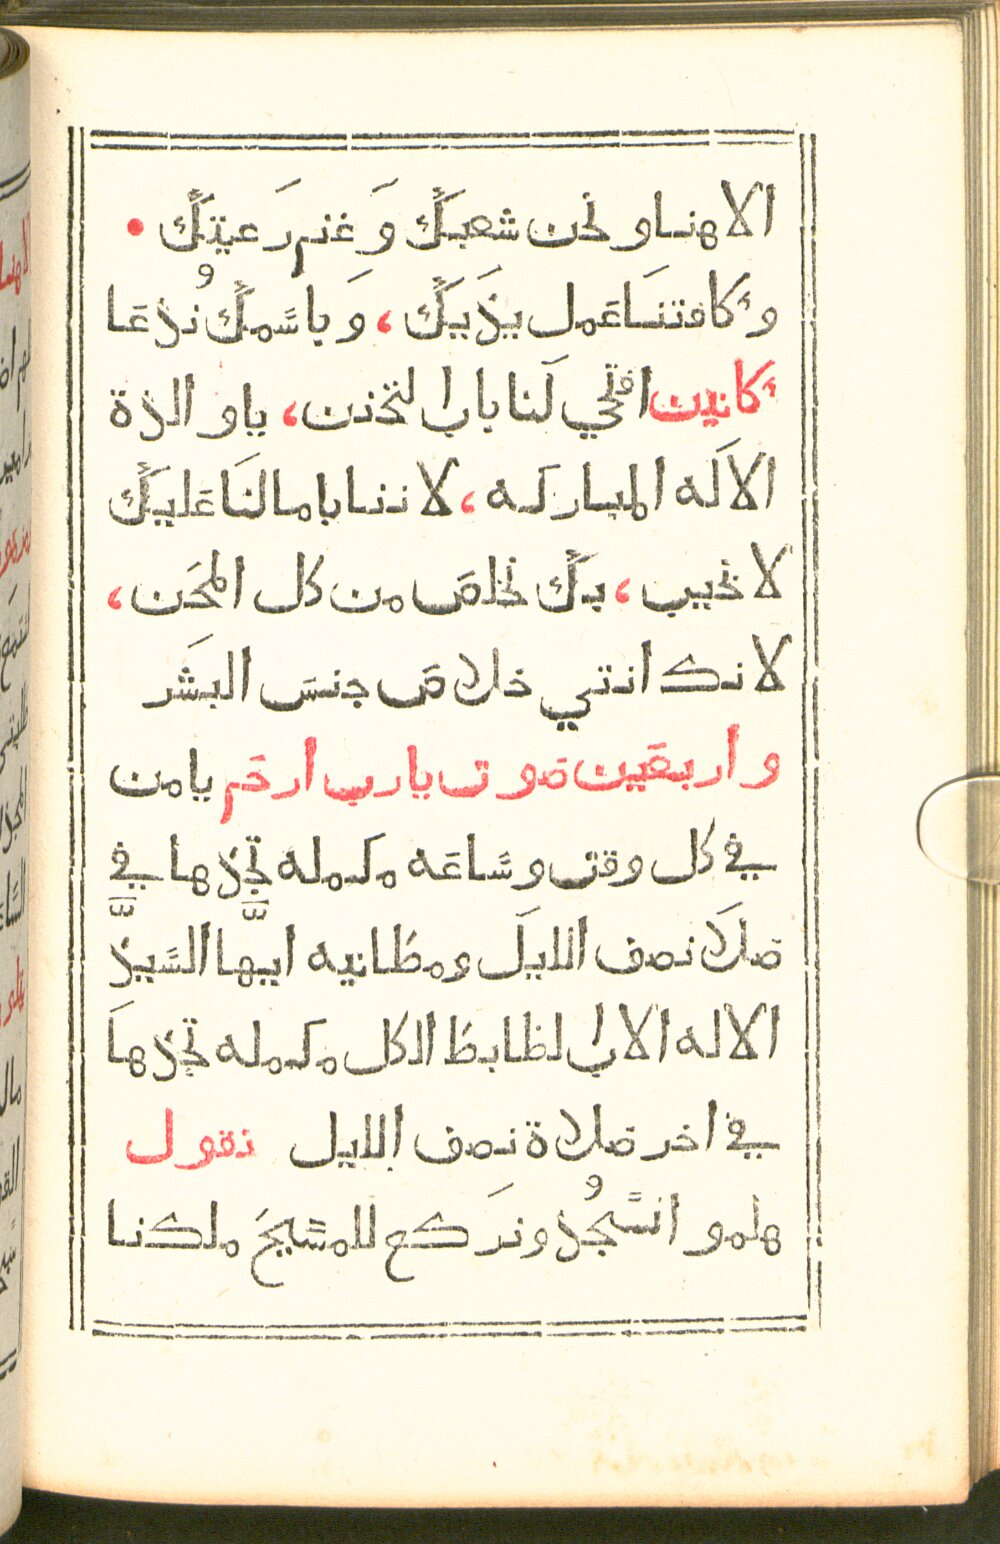 الاهنا ونحن شعبك وغنم رعيتك •
وكافتنا عمل يديك، وباسمك ندعا
كانين افتحي لنا باب التحنن، يا والدة
الاله المباركه، لاننا بامالنا عليك
لا نخيب، بك نخلص من كل المحن،
لانك انتي خلاص جنس البشر
واربعين صوت يارب ارحم يامن
في كل وقت وساعه مكمله تجدها في
صلاة نصف الليل ومطانيه ايها السيد
الاله الاب الظابط الكل مكمله تجدها
في اخر صلاة نصف الليل نقول
هلموا نسجد ونركع للمسيح ملكنا